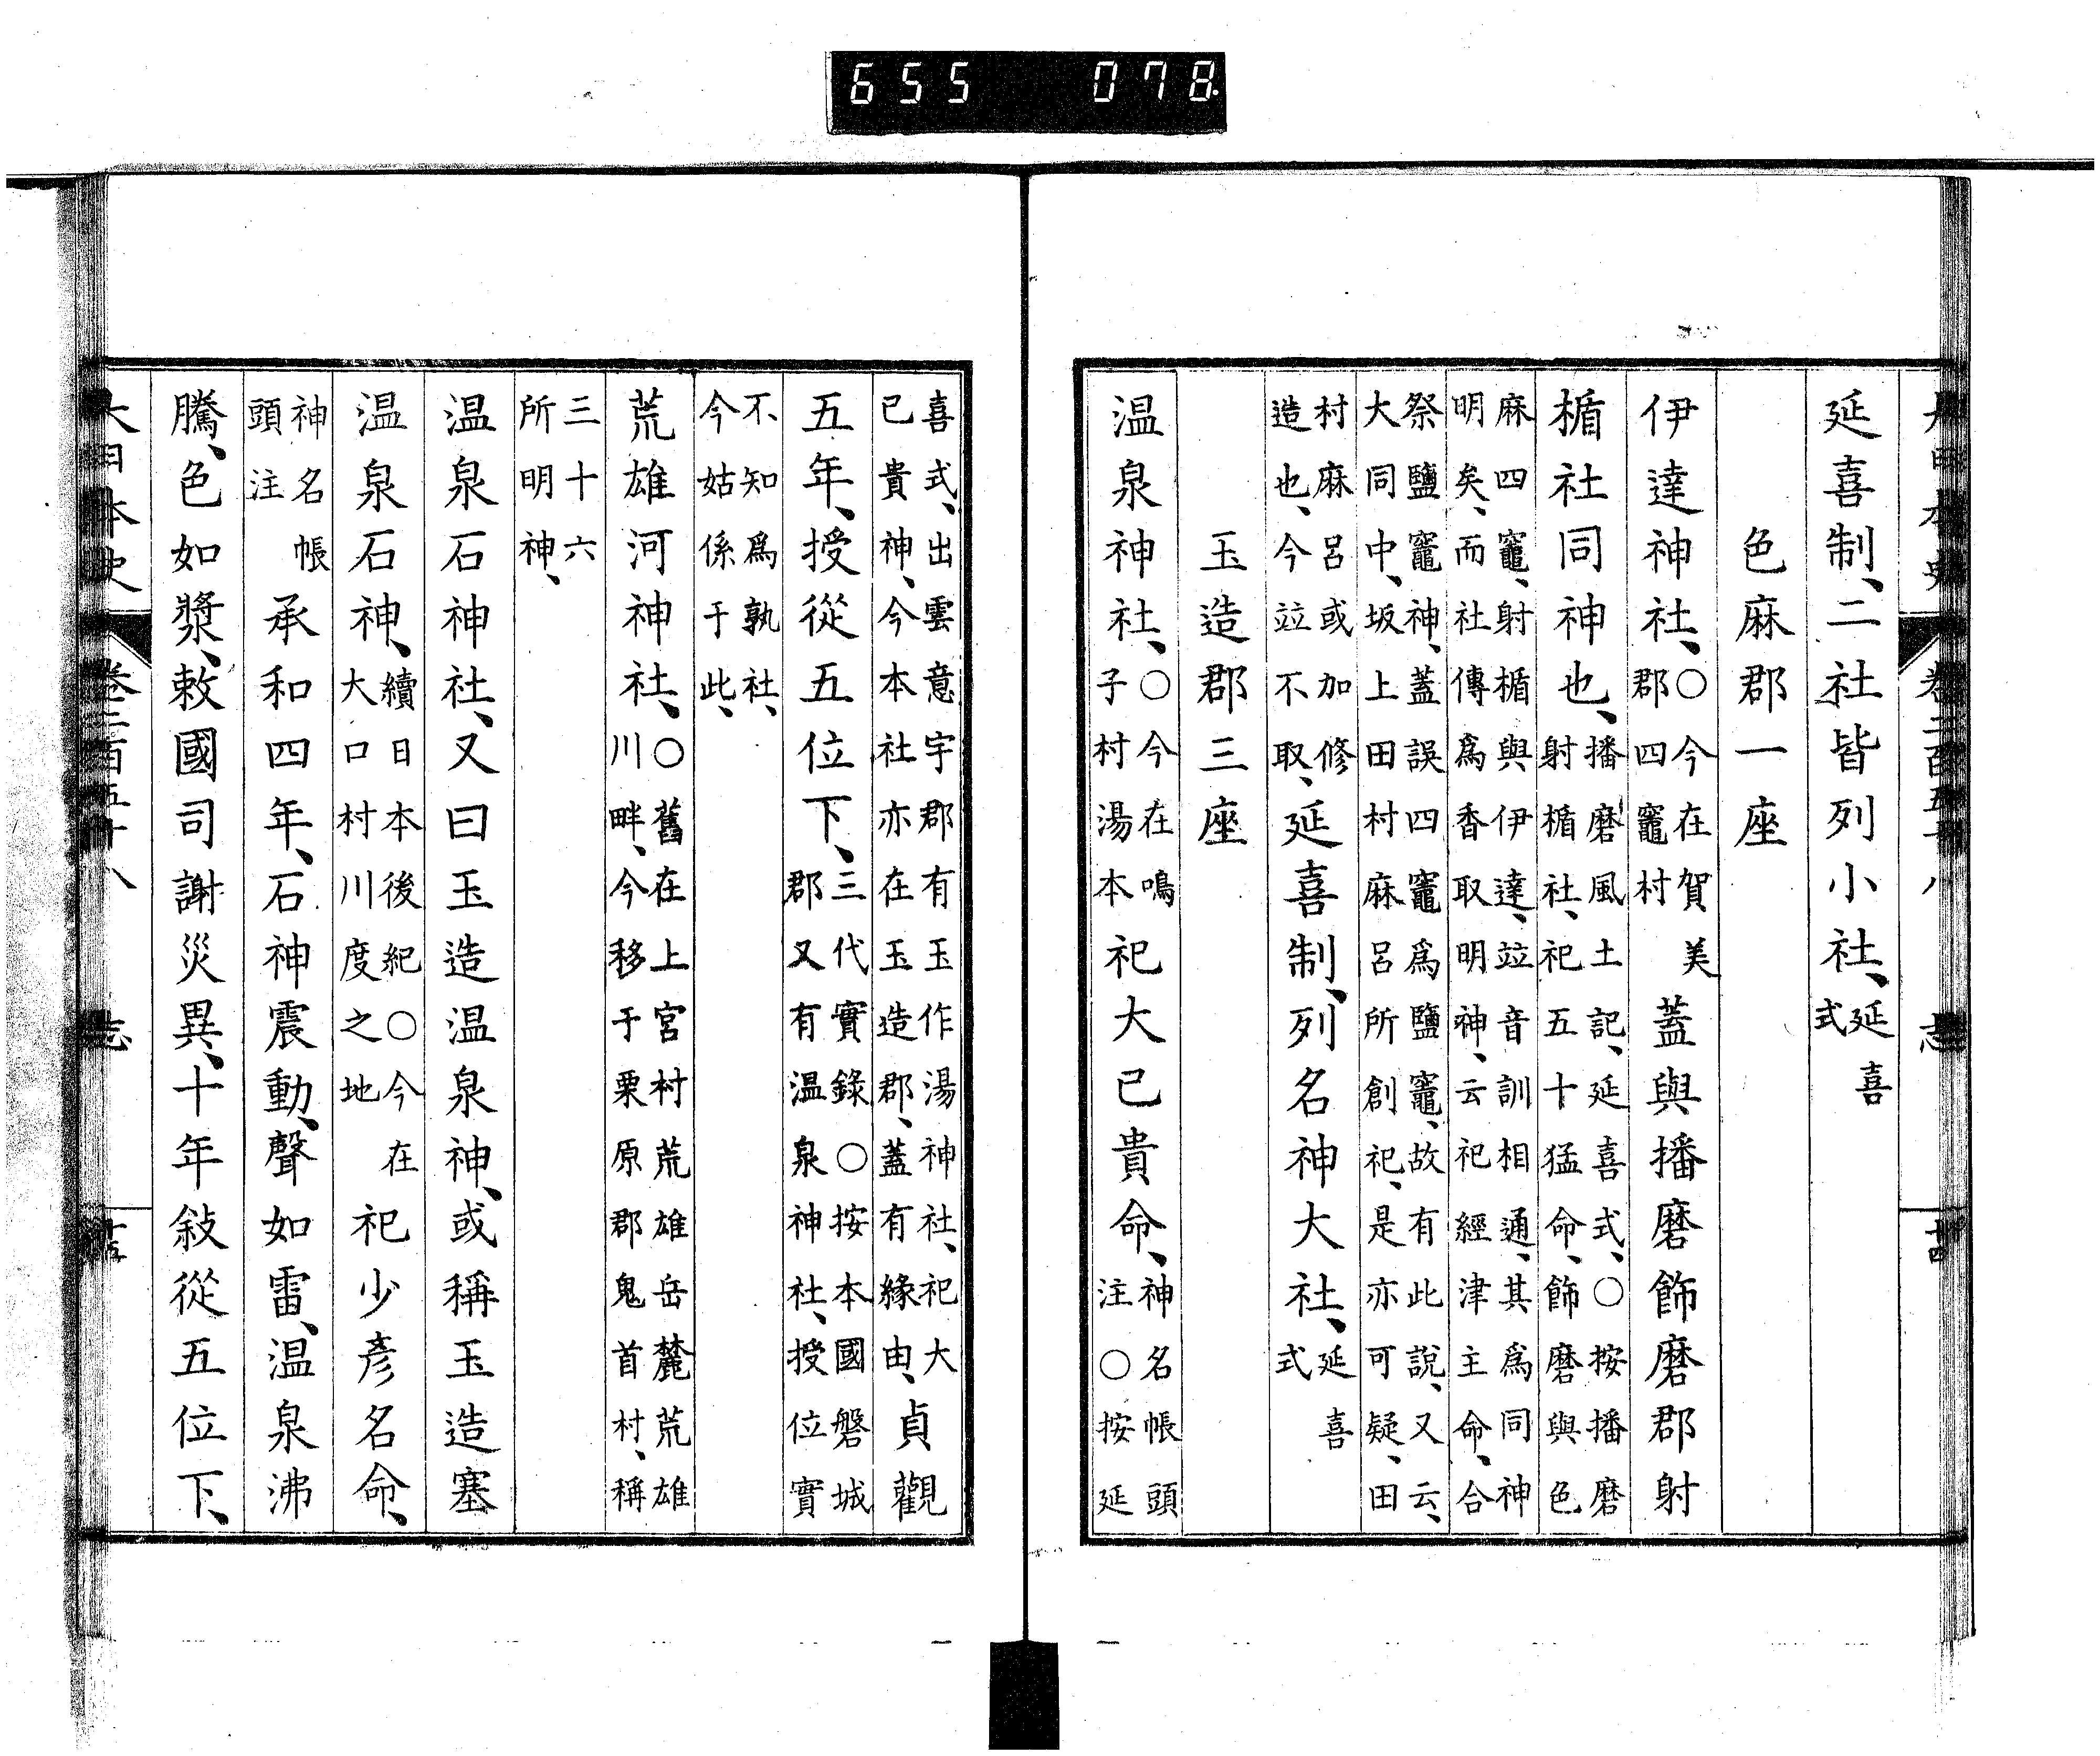 655 078.
大日本史 卷二百五十八 志 十四
延喜制、二社皆列小社、延喜式
色麻郡一座
伊達神社、〇今在賀美郡四竈村蓋與播磨飾磨郡射
楯社同神也、播磨風土記、延喜式、〇按播磨射楯社、祀五十猛命、飾磨與色
麻四竈、射楯與伊達、竝音訓相通、其爲同神明矣、而社傳爲香取明神、云祀經津主命、合
祭鹽竈神、蓋誤四竈爲鹽竈、故有此說、又云、大同中、坂上田村麻呂所創祀、是亦可疑、田
村麻呂或加修造也、今竝不取、延喜制、列名神大社、延喜式
玉造郡三座
温泉神社、〇今在鳴子村湯本祀大己貴命、神名帳頭注〇按延
喜式、出雲意宇郡有玉作湯神社、祀大已貴神、今本社亦在玉造郡、蓋有緣由、貞觀
五年、授從五位下、三代實錄〇按本國磐城郡又有温泉神社、授位實
不知爲孰社、今姑係于此、
荒雄河神社、〇舊在上宮村荒雄岳麓荒雄川畔、今移于栗原郡鬼首村、稱
三十六所明神、
温泉石神社、又曰玉造温泉神、或稱玉造塞
温泉石神、續日本後紀〇今在大口村川度之地祀少彥名命、
神名帳頭注承和四年、石神震動、聲如雷、温泉沸
騰、色如漿、敕國司謝災異、十年敍從五位下、
大日本史 卷二百五十八 志 十五